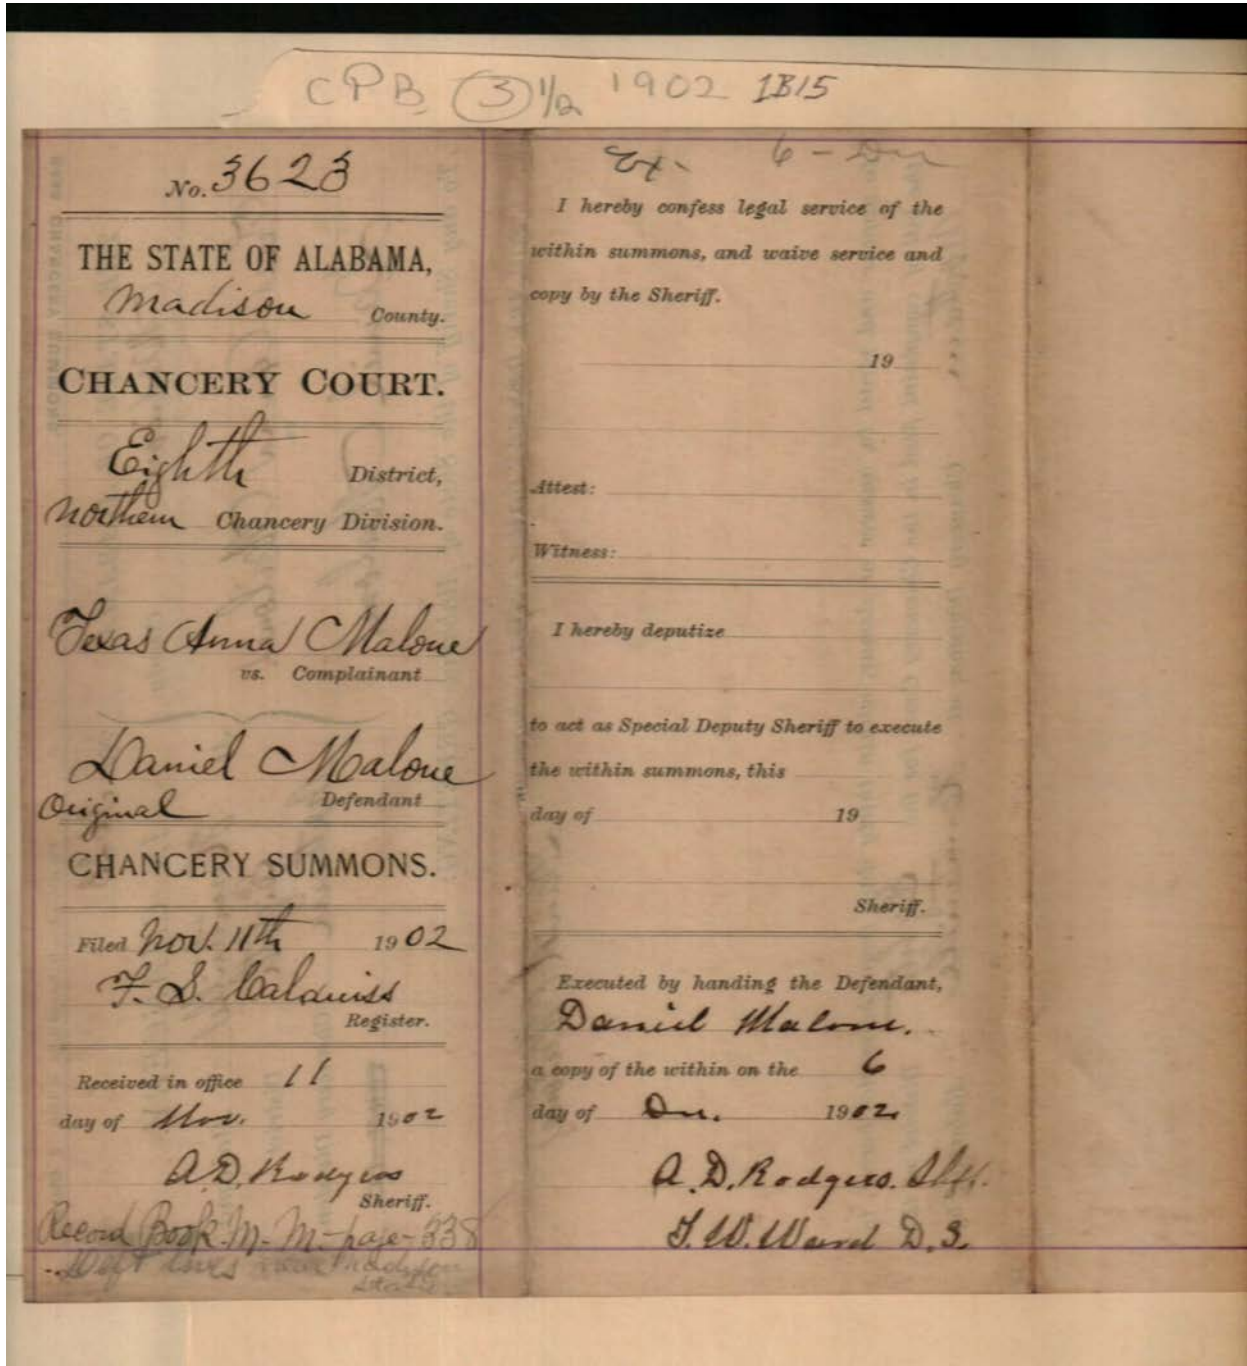 CPB (3) 1/2 1902 1B15
No. 3623
THE STATE OF ALABAMA,
Madison County.
CHANCERY COURT.
Eighth District,
Northern Chancery Division.
Texas Anna Malone
vs. Complainant
Daniel Malone
Original Defendant
CHANCERY SUMMONS.
Filed Nov. 11th 1902
F. S.
Register.
Received in office 11
day of Nov. 1902
A. D. Rodgers
Sheriff.
Record Book M. M - page - 338
Deft lives near Madison
Ex - 6 - Dec
I hereby confess legal service of the
within summons, and waive service and
copy by the Sheriff.
19
Attest:
Witness:
I hereby deputize
to act as Special Deputy Sheriff to execute
the within summons, this
day of 19
Sheriff.
Executed by handing the Defendant,
Daniel Malone.
a copy of the within on the 6
day of Dec. 1902
A. D. Rodgers. Shff.
T. W. Ward D. S.